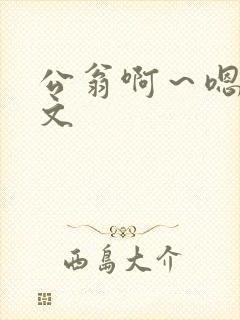 公翁啊～嗯
文
西島大介